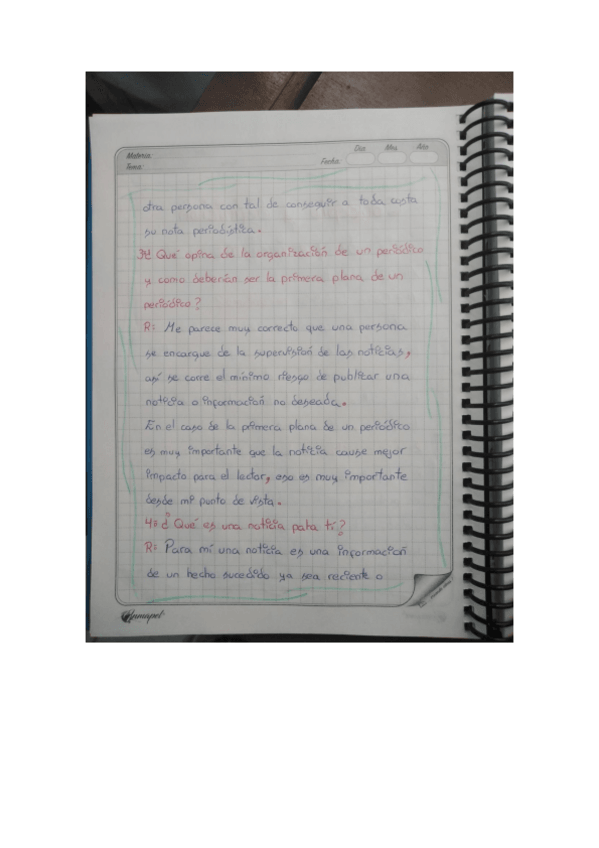 Materia:
Tema:
Fecha:
Día
Mes
Año
otra persona con tal de conseguir a toda costa
su nota periodística.
3# Qué opina de la organización de un periódico
y como deberían ser la primera plana de un
periódico?
R: Me parece muy correcto que una persona
se encargue de la supervisión de las noticias,
así se corre el mínimo riesgo de publicar una
noticia o información no deseada.
En el caso de la primera plana de un periódico
es muy importante que la notícia cause mejor
impacto para el lector, eso es muy importante
desde mi punto de vista.
4# ¿Qué es una notícia para tí?
R: Para mí una notícia es una información
de un hecho sucedido ya sea reciente o